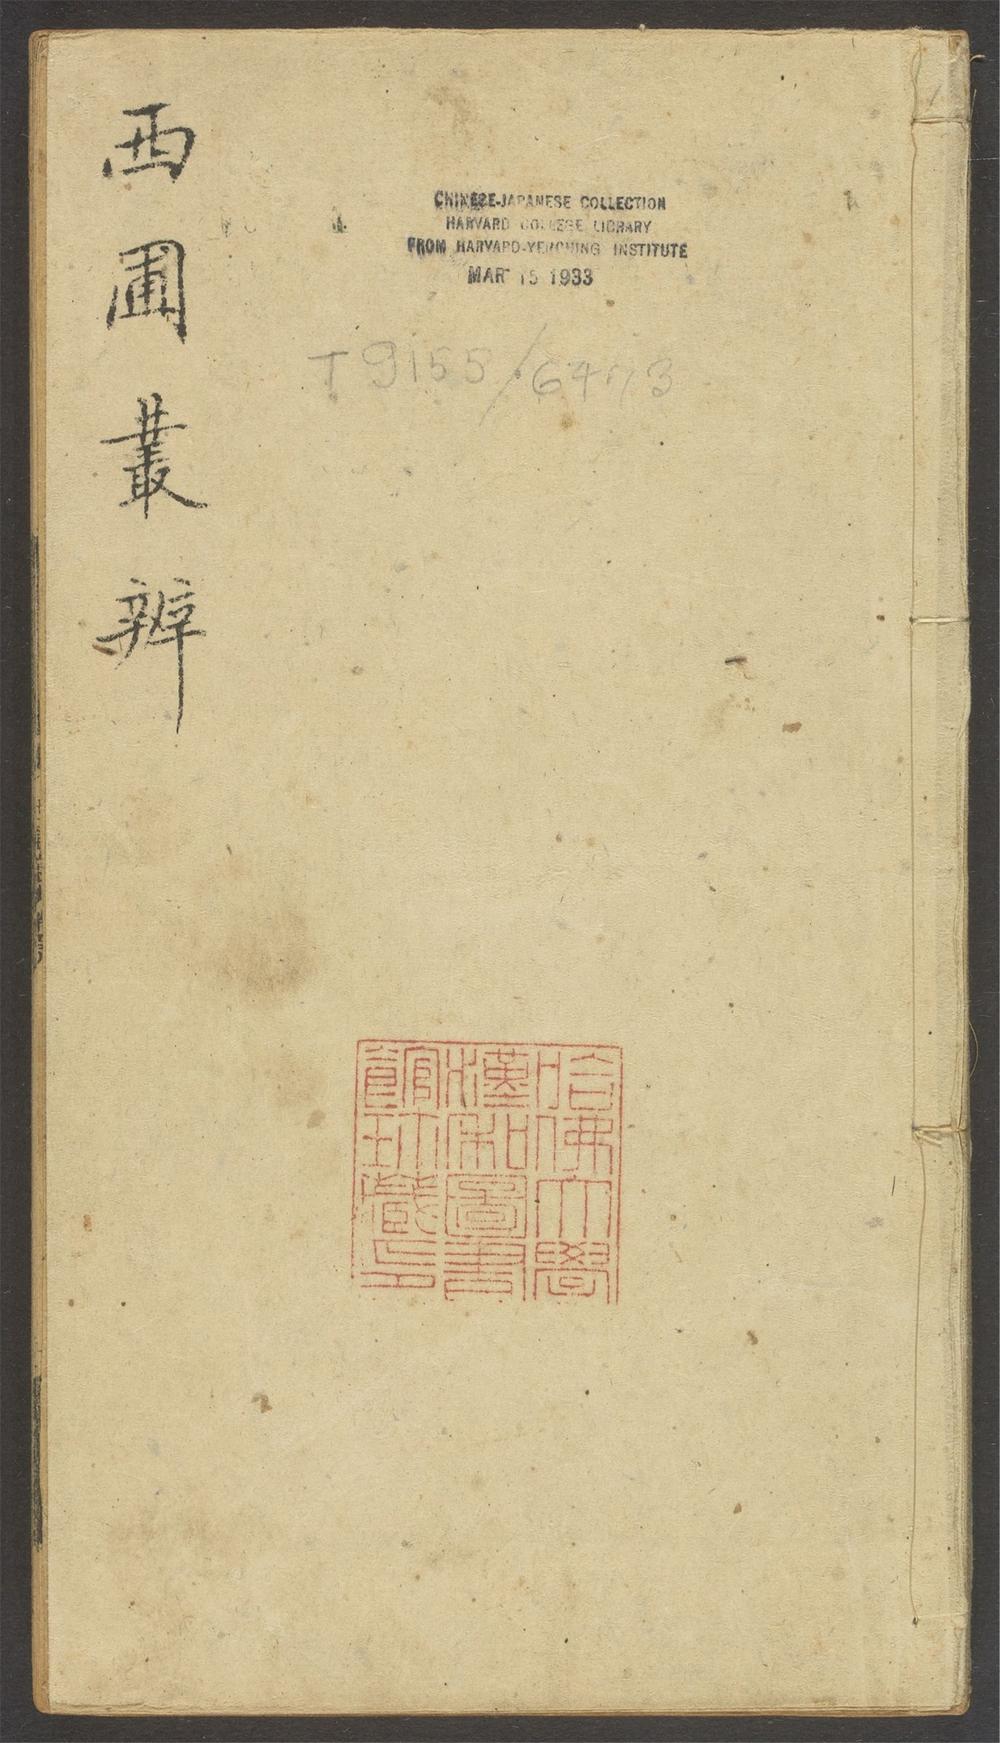 西圃叢辨
CHINESE-JAPANESE COLLECTION
HARVARD COLLEGE LIBRARY
FROM HARVARD-YENCHING INSTITUTE
MAR 15 1933
T 9155/6473
哈佛大學
漢和圖書
館珍藏印